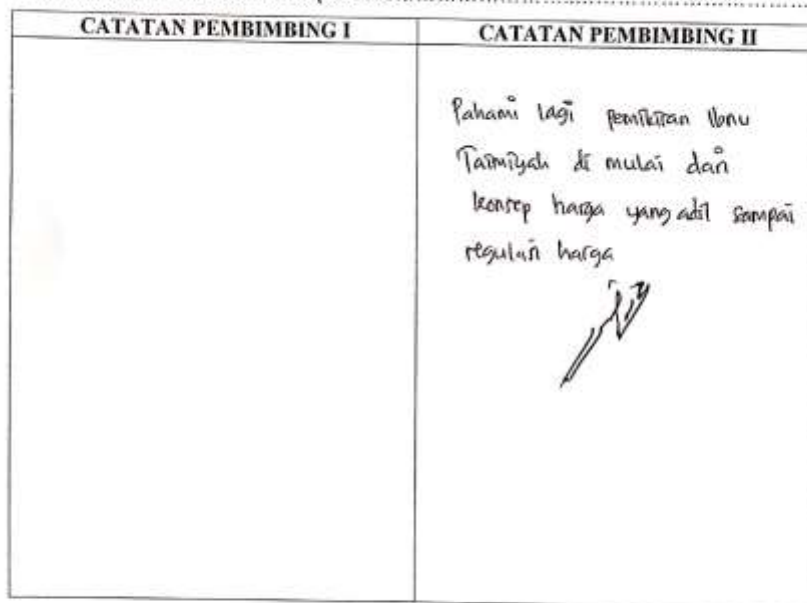 CATATAN PEMBIMBING I
CATATAN PEMBIMBING II
Pahami lagi pemikiran Ibnu
Taimiyah di mulai dari
konsep harga yang adil sampai
regulasi harga